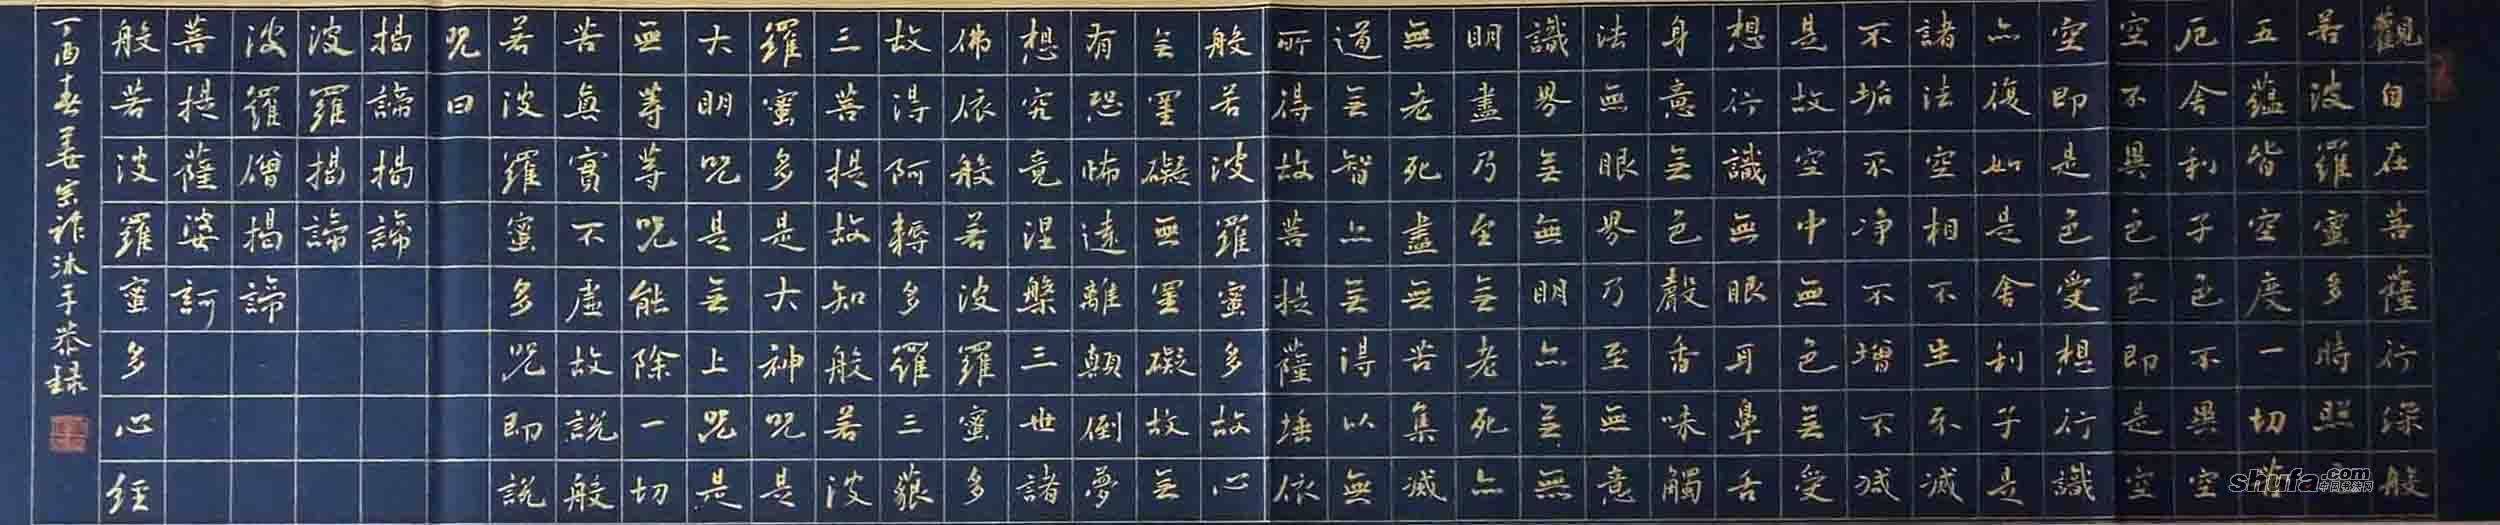 觀自在菩薩行深般
若波羅蜜多時照
五蘊皆空度一切苦
厄舍利子色不異空
空不異色色即是空
空即是色受想行識
亦復如是舍利子是
諸法空相不生不滅
不垢不净不增不减
是故空中無色無受
想行識無眼耳鼻舌
身意無色聲香味觸
法無眼界乃至無意
識界無無明亦無無
明盡乃至無老死亦
無老死盡無苦集滅
道無智亦無得以無
所得故菩提薩埵依
般若波羅蜜多故心
無罣礙無罣礙故無
有恐怖遠離顛倒夢
想究竟涅槃三世諸
佛依般若波羅蜜多
故得阿耨多羅三藐
三菩提故知般若波
羅蜜多是大神咒是
大明咒是無上咒是
無等等咒能除一切
苦真實不虛故說般
若波羅蜜多咒即說
咒曰
揭諦揭諦
波羅揭諦
波羅僧揭諦
菩提薩婆訶
般若波羅蜜多心經
丁酉春姜宗沐手恭録
shufa.com
中国书法网